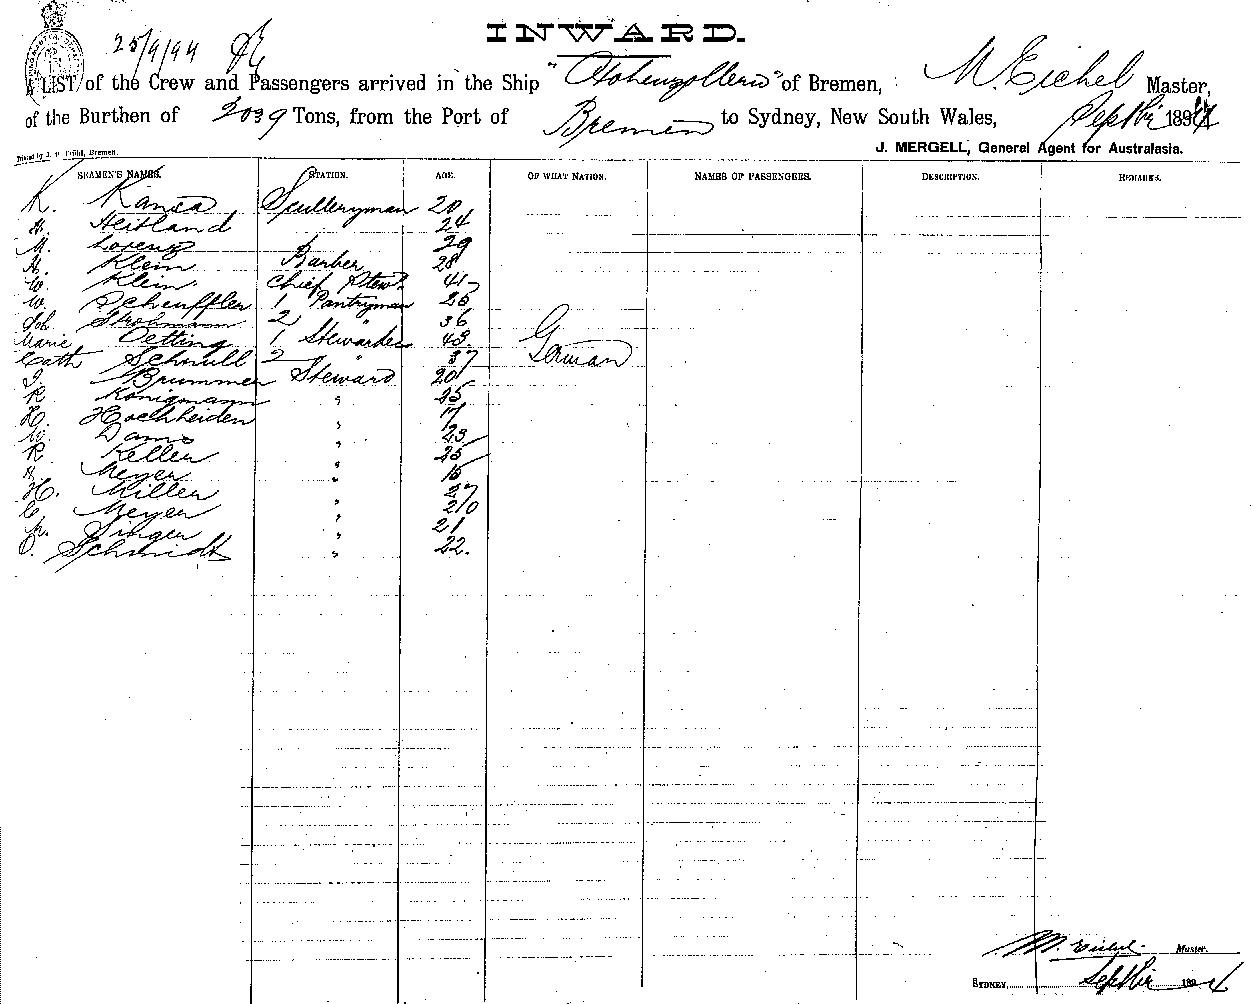 INWARD.
25/9/94
A LIST of the Crew and Passengers arrived in the Ship "Hohenzollern" of Bremen, M. Eichel Master,
of the Burthen of 2039 Tons, from the Port of Bremen to Sydney, New South Wales, Septbr 1894
Bremen. J. MERGELL, General Agent for Australasia.
SEAMEN'S NAMES. STATION. AGE. OF WHAT NATION. NAMES OF PASSENGERS. DESCRIPTION. REMARKS.
K. Kania Sculleryman 20
Heitland 24
M. Lorenz " 29
Klein Barber 28
W. Klein Chief Stew. 41
W. Scheuffler 1 Pantryman 25
Joh. Strohmann 2 " 36
Marie Oetting 1 Stewardess 43 German
Cath Schmull 2 " 37
Brummer Steward 20
R Königmann " 25
H. Hochheiden " 17
W. Dams " 23
R Keller " 25
Meyer "
H. Miller " 27
C. Meyer " 20
Singer " 21
O. Schmidt " 22.
M. Eichel. Master.
SYDNEY, Septbr 1894